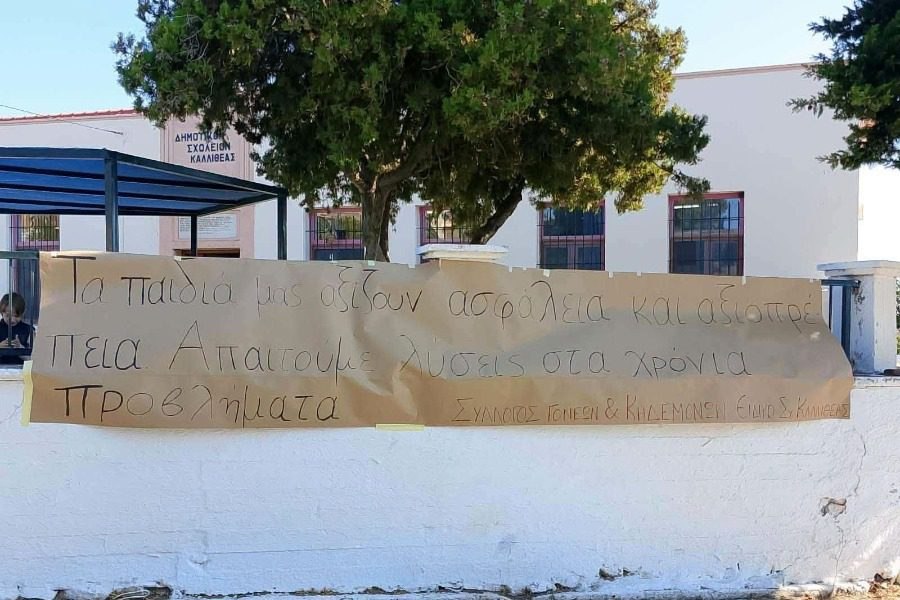 ΔΗΜΟΤΙΚΟΝ
ΣΧΟΛΕΙΟΝ
ΚΑΛΛΙΘΕΑΣ
Τα παιδιά μας αξίζουν ασφάλεια και αξιοπρέ
πεια. Απαιτούμε λύσεις στα χρόνια
προβλήματα
ΣΥΛΛΟΓΟΣ ΓΟΝΕΩΝ & ΚΗΔΕΜΟΝΩΝ ΚΑΛΛΙΘΕΑΣ